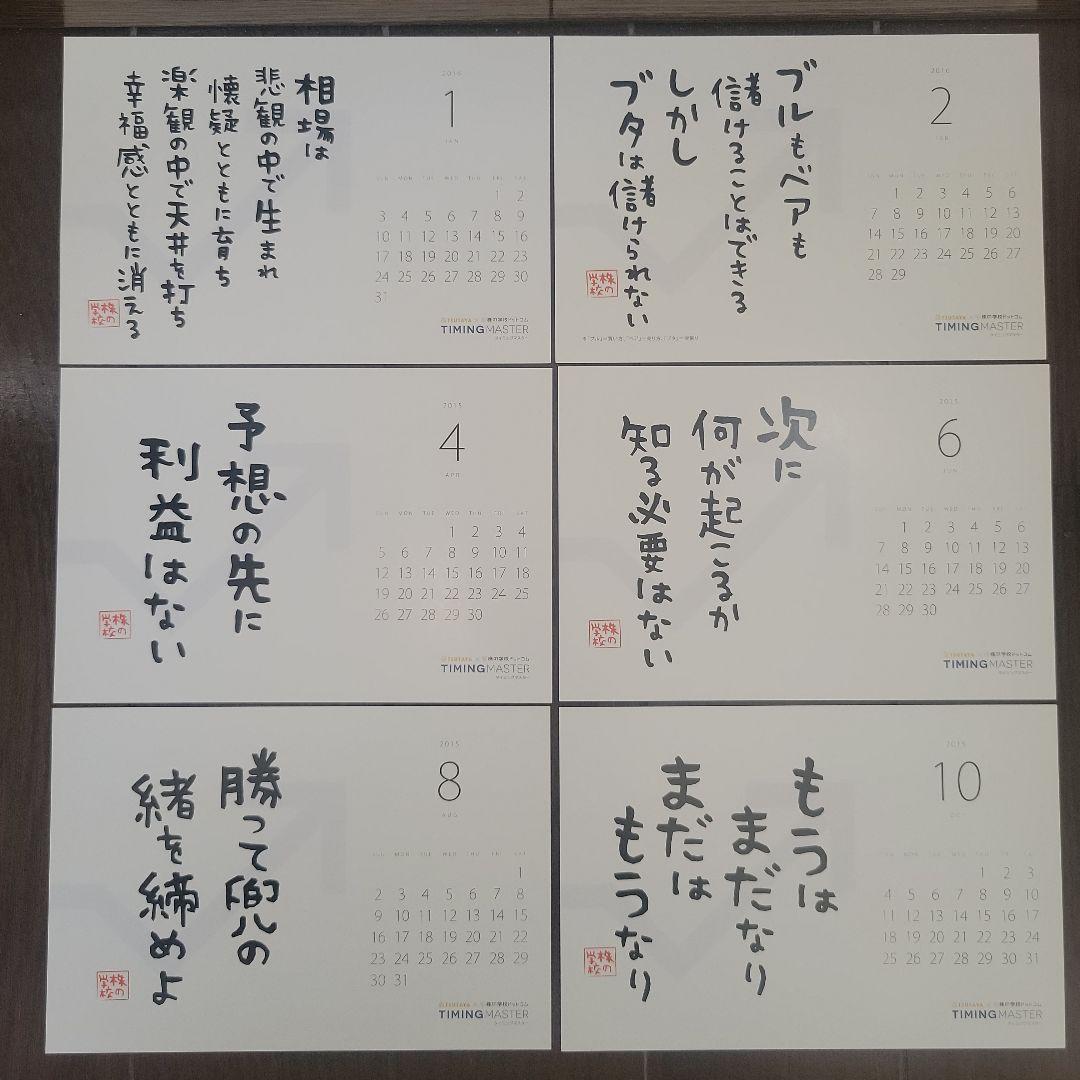 相場は
悲観の中で生まれ
懐疑とともに育ち
楽観の中で天井を打ち
幸福感とともに消える
株の
学校
2016
1
JAN
SUN MON TUE WED THU FRI SAT
1 2
3 4 5 6 7 8 9
10 11 12 13 14 15 16
17 18 19 20 21 22 23
24 25 26 27 28 29 30
31
TSUTAYA × 株の学校ドットコム
TIMING MASTER
タイミングマスター
ブルもベアも
儲けることはできる
しかし
ブタは儲けられない
株の
学校
2016
2
FEB
SUN MON TUE WED THU FRI SAT
1 2 3 4 5 6
7 8 9 10 11 12 13
14 15 16 17 18 19 20
21 22 23 24 25 26 27
28 29
TSUTAYA × 株の学校ドットコム
TIMING MASTER
タイミングマスター
予想の先に
利益はない
株の
学校
2015
4
APR
SUN MON TUE WED THU FRI SAT
1 2 3 4
5 6 7 8 9 10 11
12 13 14 15 16 17 18
19 20 21 22 23 24 25
26 27 28 29 30
TSUTAYA × 株の学校ドットコム
TIMING MASTER
タイミングマスター
次に
何が起こるか
知る必要はない
株の
学校
2015
6
JUN
SUN MON TUE WED THU FRI SAT
1 2 3 4 5 6
7 8 9 10 11 12 13
14 15 16 17 18 19 20
21 22 23 24 25 26 27
28 29 30
TSUTAYA × 株の学校ドットコム
TIMING MASTER
タイミングマスター
勝って兜の
緒を締めよ
株の
学校
2015
8
AUG
SUN MON TUE WED THU FRI SAT
1
2 3 4 5 6 7 8
9 10 11 12 13 14 15
16 17 18 19 20 21 22
23 24 25 26 27 28 29
30 31
TSUTAYA × 株の学校ドットコム
TIMING MASTER
タイミングマスター
もうは
まだなり
まだは
もうなり
株の
学校
2015
10
OCT
SUN MON TUE WED THU FRI SAT
1 2 3
4 5 6 7 8 9 10
11 12 13 14 15 16 17
18 19 20 21 22 23 24
25 26 27 28 29 30 31
TSUTAYA × 株の学校ドットコム
TIMING MASTER
タイミングマスター